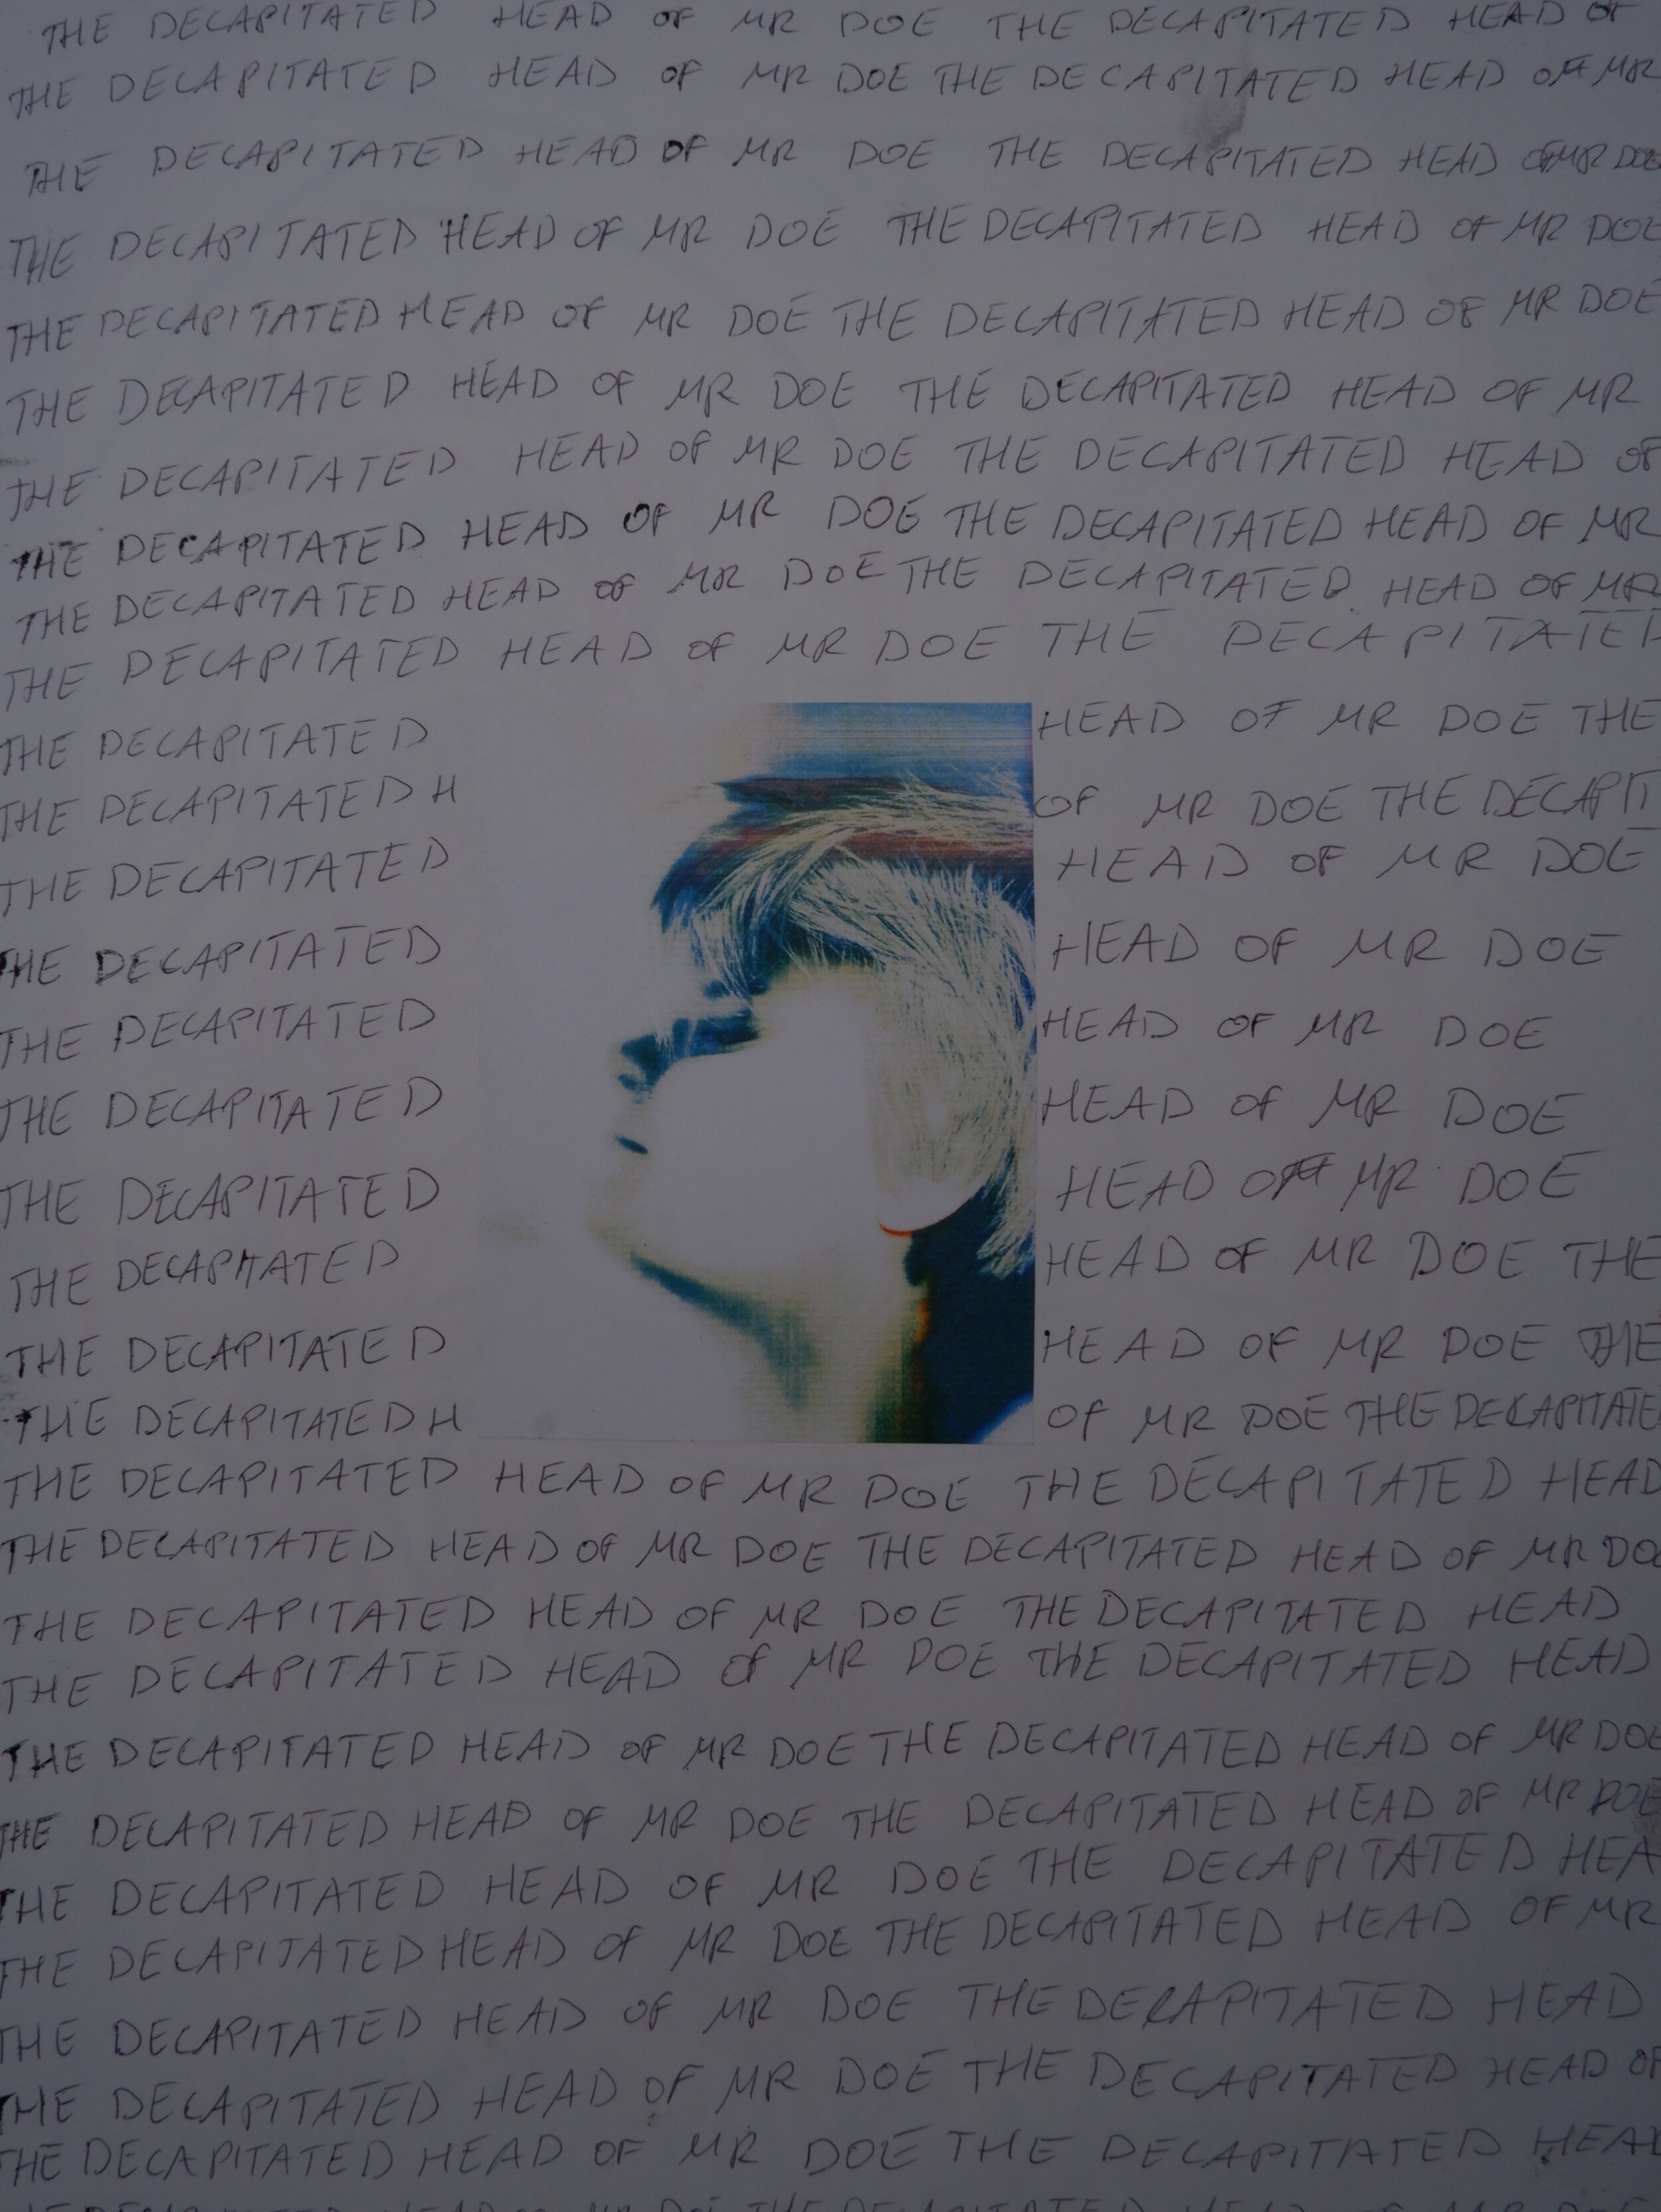 THE DECAPITATED HEAD OF MR DOE THE DECAPITATED HEAD OF
THE DECAPITATED HEAD OF MR DOE THE DECAPITATED HEAD OF MR
THE DECAPITATED HEAD OF MR DOE THE DECAPITATED HEAD OF MR DOE
THE DECAPITATED HEAD OF MR DOE THE DECAPITATED HEAD OF MR DOE
THE DECAPITATED HEAD OF MR DOE THE DECAPITATED HEAD OF MR DOE
THE DECAPITATED HEAD OF MR DOE THE DECAPITATED HEAD OF MR
THE DECAPITATED HEAD OF MR DOE THE DECAPITATED HEAD OF
THE DECAPITATED HEAD OF MR DOE THE DECAPITATED HEAD OF MR
THE DECAPITATED HEAD OF MR DOE THE DECAPITATED HEAD OF MR
THE DECAPITATED HEAD OF MR DOE THE DECAPITATED
THE DECAPITATED HEAD OF MR DOE THE
THE DECAPITATED H OF MR DOE THE DECAPIT
THE DECAPITATED HEAD OF MR DOE
THE DECAPITATED HEAD OF MR DOE
THE DECAPITATED HEAD OF MR DOE
THE DECAPITATED HEAD OF MR DOE
THE DECAPITATED HEAD OF MR DOE
THE DECAPITATED HEAD OF MR DOE THE
THE DECAPITATED HEAD OF MR DOE THE
THE DECAPITATED H OF MR DOE THE DECAPITATE
THE DECAPITATED HEAD OF MR DOE THE DECAPITATED HEAD
THE DECAPITATED HEAD OF MR DOE THE DECAPITATED HEAD OF MR DOE
THE DECAPITATED HEAD OF MR DOE THE DECAPITATED HEAD
THE DECAPITATED HEAD OF MR DOE THE DECAPITATED HEAD
THE DECAPITATED HEAD OF MR DOE THE DECAPITATED HEAD OF MR DOE
THE DECAPITATED HEAD OF MR DOE THE DECAPITATED HEAD OF MR DOE
THE DECAPITATED HEAD OF MR DOE THE DECAPITATED HEA
THE DECAPITATED HEAD OF MR DOE THE DECAPITATED HEAD OF MR
THE DECAPITATED HEAD OF MR DOE THE DECAPITATED HEAD
THE DECAPITATED HEAD OF MR DOE THE DECAPITATED HEAD OF
THE DECAPITATED HEAD OF MR DOE THE DECAPITATED HEAD